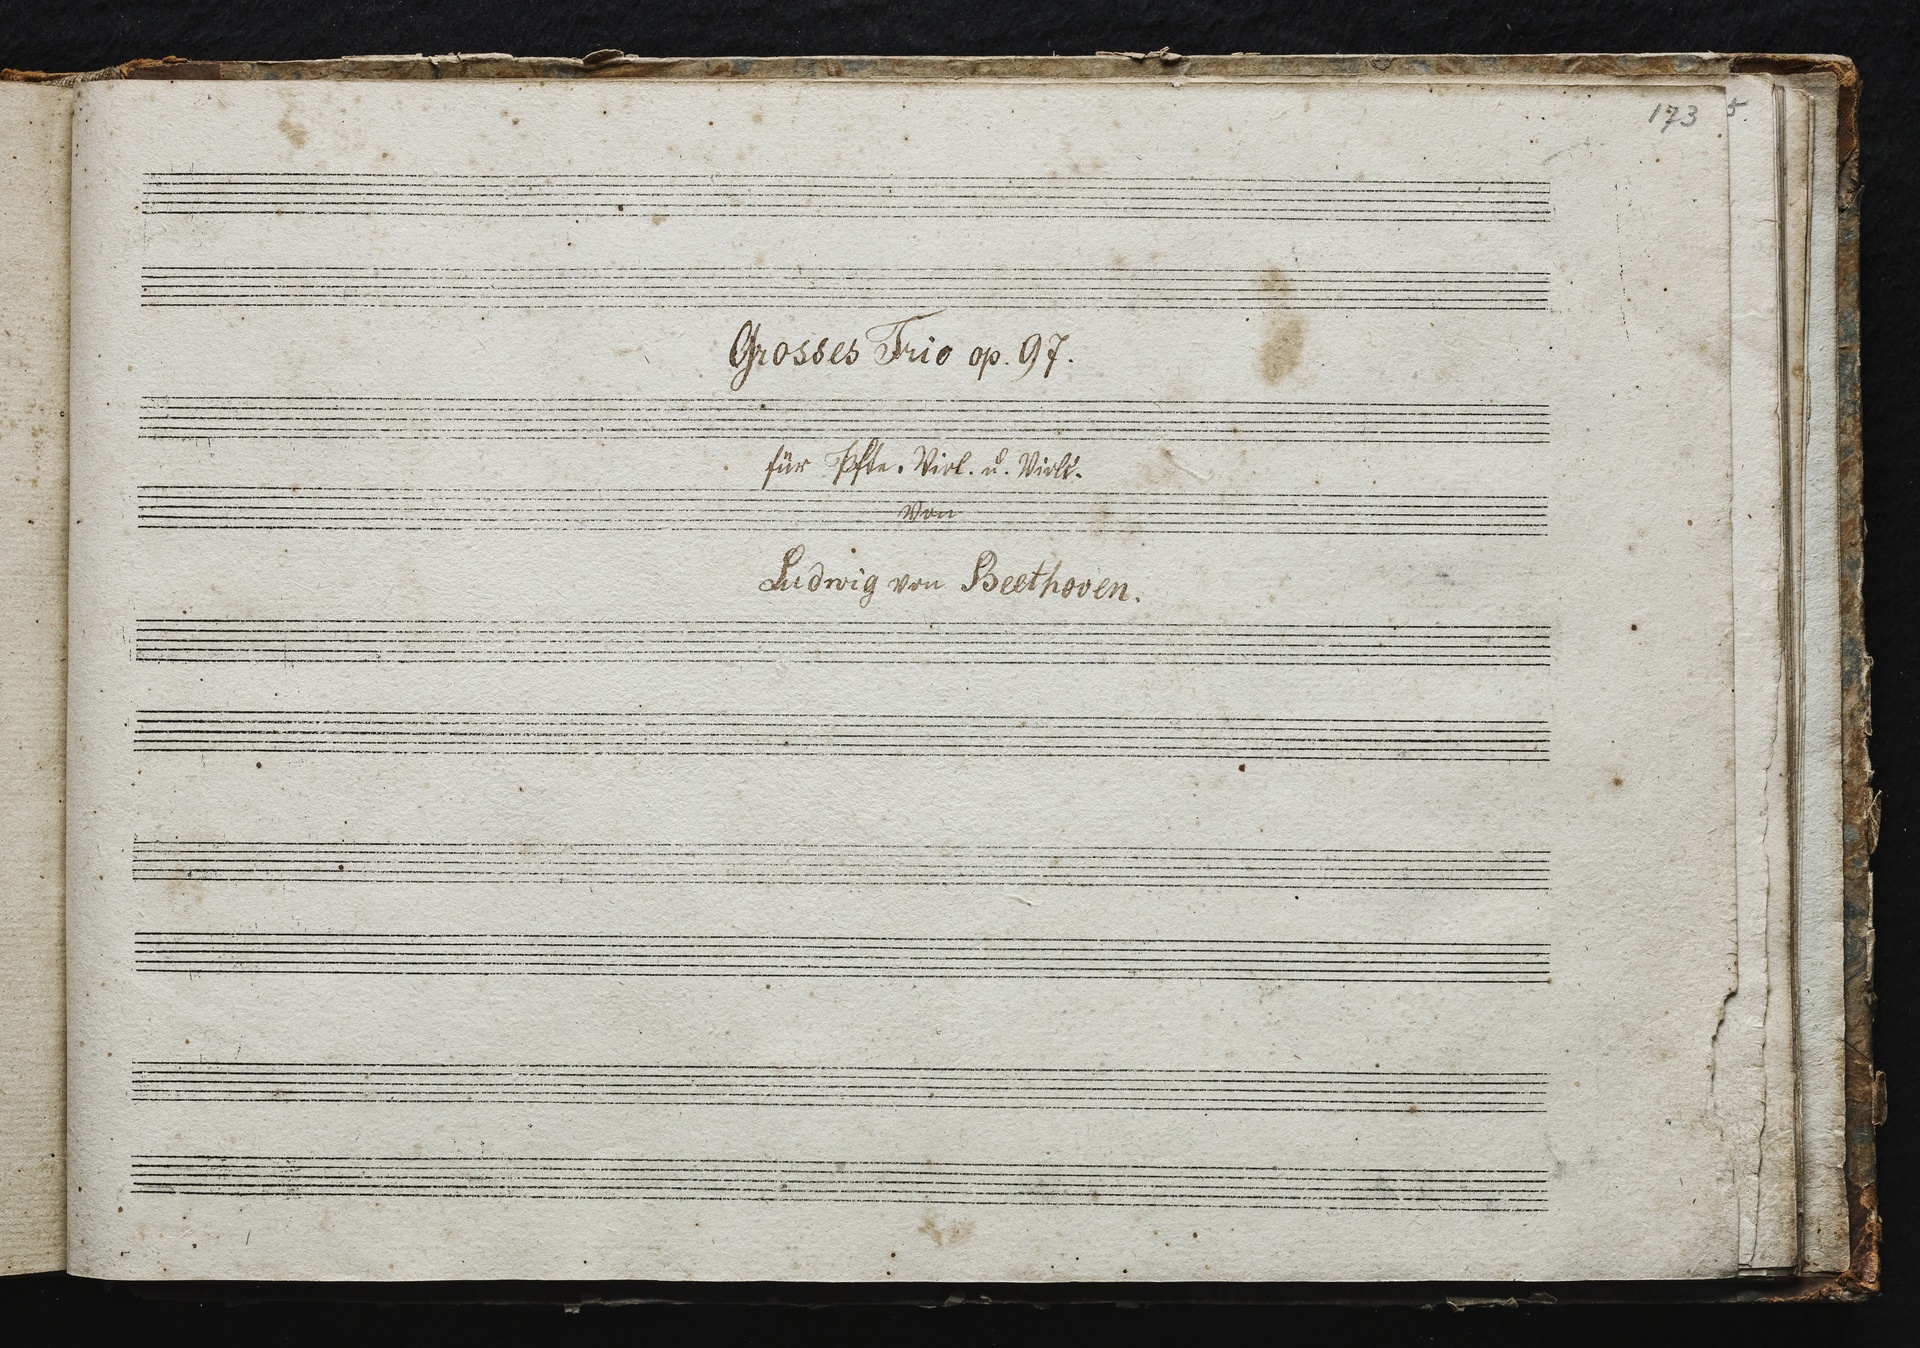 173 5.
Grosses Trio op. 97.
für Pfte. Viol. u. Violc.
von
Ludwig van Beethoven.